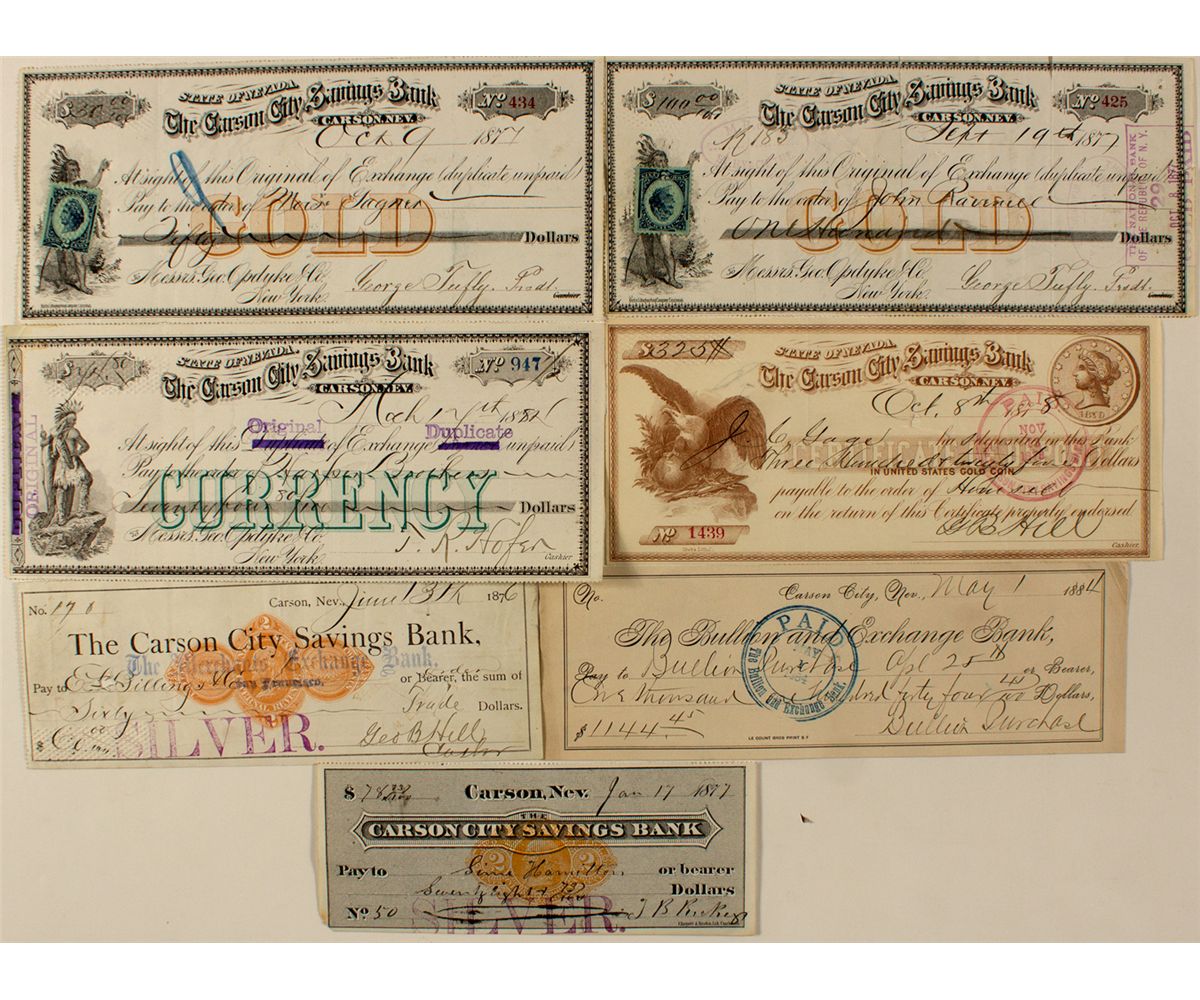 $50.00
STATE OF NEVADA
The Carson City Savings Bank
CARSON, NEV.
No 434
Oct 9 1877
At sight of this Original of Exchange (duplicate unpaid)
Pay to the order of
GOLD
Fifty Dollars
Messrs. Geo. Opdyke & Co.
New York.
George Tufly. Prsdt.
Cashier
$100.00
STATE OF NEVADA
The Carson City Savings Bank
CARSON, NEV.
No 425
R183
Sept 19th 1877
At sight of this Original of Exchange (duplicate unpaid)
Pay to the order of John
GOLD
One Hundred Dollars
Messrs. Geo. Opdyke & Co.
New York.
George Tufly. Prsdt.
Cashier
THE NATIONAL BANK
OF THE REPUBLIC OF N.Y.
PAID
STATE OF NEVADA
The Carson City Savings Bank
CARSON, NEV.
No 947
ORIGINAL
Original Duplicate
At sight of this of Exchange unpaid
Pay to the order
CURRENCY
Dollars
Messrs. Geo. Opdyke & Co.
New York.
T. R. Hofer
Cashier
$325
STATE OF NEVADA
The Carson City Savings Bank
CARSON, NEV.
1880
Oct. 8th
PAID
NOV
J. C. Gage has deposited in this Bank
Three Hundred & twenty five Dollars
IN UNITED STATES GOLD COIN
payable to the order of Himself
on the return of this Certificate properly endorsed
No 1439
G B Hill
Cashier
No. 170
Carson, Nev., June 13th 1876
The Carson City Savings Bank,
The Merchants Exchange Bank.
San Francisco.
Pay to E. L. Billings & Co or Bearer, the sum of
Sixty Trade Dollars.
$60.00
SILVER.
Geo B Hill
No.
Carson City, Nev., May 1 1884
The Bullion and Exchange Bank,
Pay to Bullion Purchase Apl 25th or Bearer,
One Thousand One Hundred forty four 45/100 Dollars,
$1144.45
Bullion Purchase
PAID
The Bullion and Exchange Bank.
LE COUNT BROS PRINT S F
$78 73/100
Carson, Nev. Jan 17 1877
THE
CARSON CITY SAVINGS BANK
2 2
Pay to Hamilton or bearer
Seventy eight & 73/100 Dollars
No 50
SILVER.